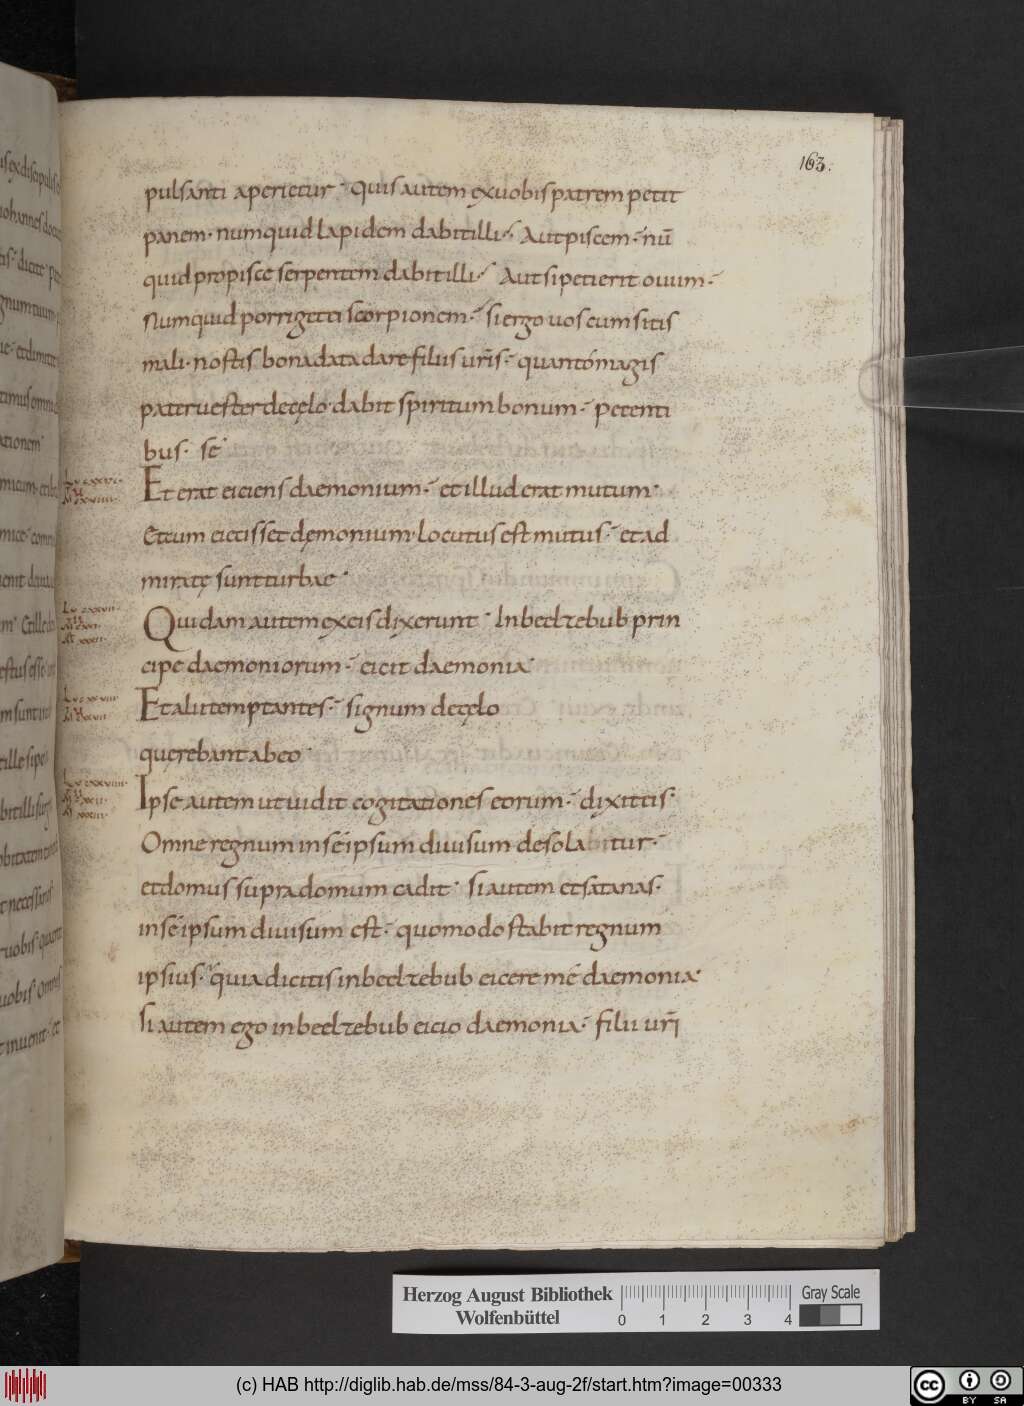 163.
pulsanti aperietur· Quis autem ex uobis patrem petit
panem· numquid lapidem dabit illi·/ Aut piscem·/ nū
quid pro pisce serpentem dabit illi·/ Aut si petierit ouum·/
Numquid porriget ei scorpionem·/ si ergo uos cum sitis
mali· nostis bona data dare filiis ur̄is·/ quantó magis
pater uester de cęlo· dabit spiritum bonum·/ petenti
bus· se·
Et erat eiciens daemonium·/ et illud erat mutum·
Et cum eiecisset dęmonium· locutus est mutus·/ et ad
miratę sunt turbae·
Quidam autem ex eis dixerunt· In beelzebub prin
cipe daemoniorum·/ eicit daemonia·
Et alii temptantes·/ signum de cęlo
quęrebant ab eo·
Ipse autem ut uidit cogitationes eorum·/ dixit eis·
Omne regnum in sé ipsum diuisum desolabitur·/
et domus supra domum cadit· Si autem et satanas·
in sé ipsum diuisum est·/ quomodo stabit regnum
ipsius· quia dicitis in beelzebub eicere mé daemonia·
Si autem ego in beelzebub eicio daemonia·/ filii ur̄i
Herzog August Bibliothek
Wolfenbüttel
0 1 2 3 4
Gray Scale
(c) HAB http://diglib.hab.de/mss/84-3-aug-2f/start.htm?image=00333
cc BY SA